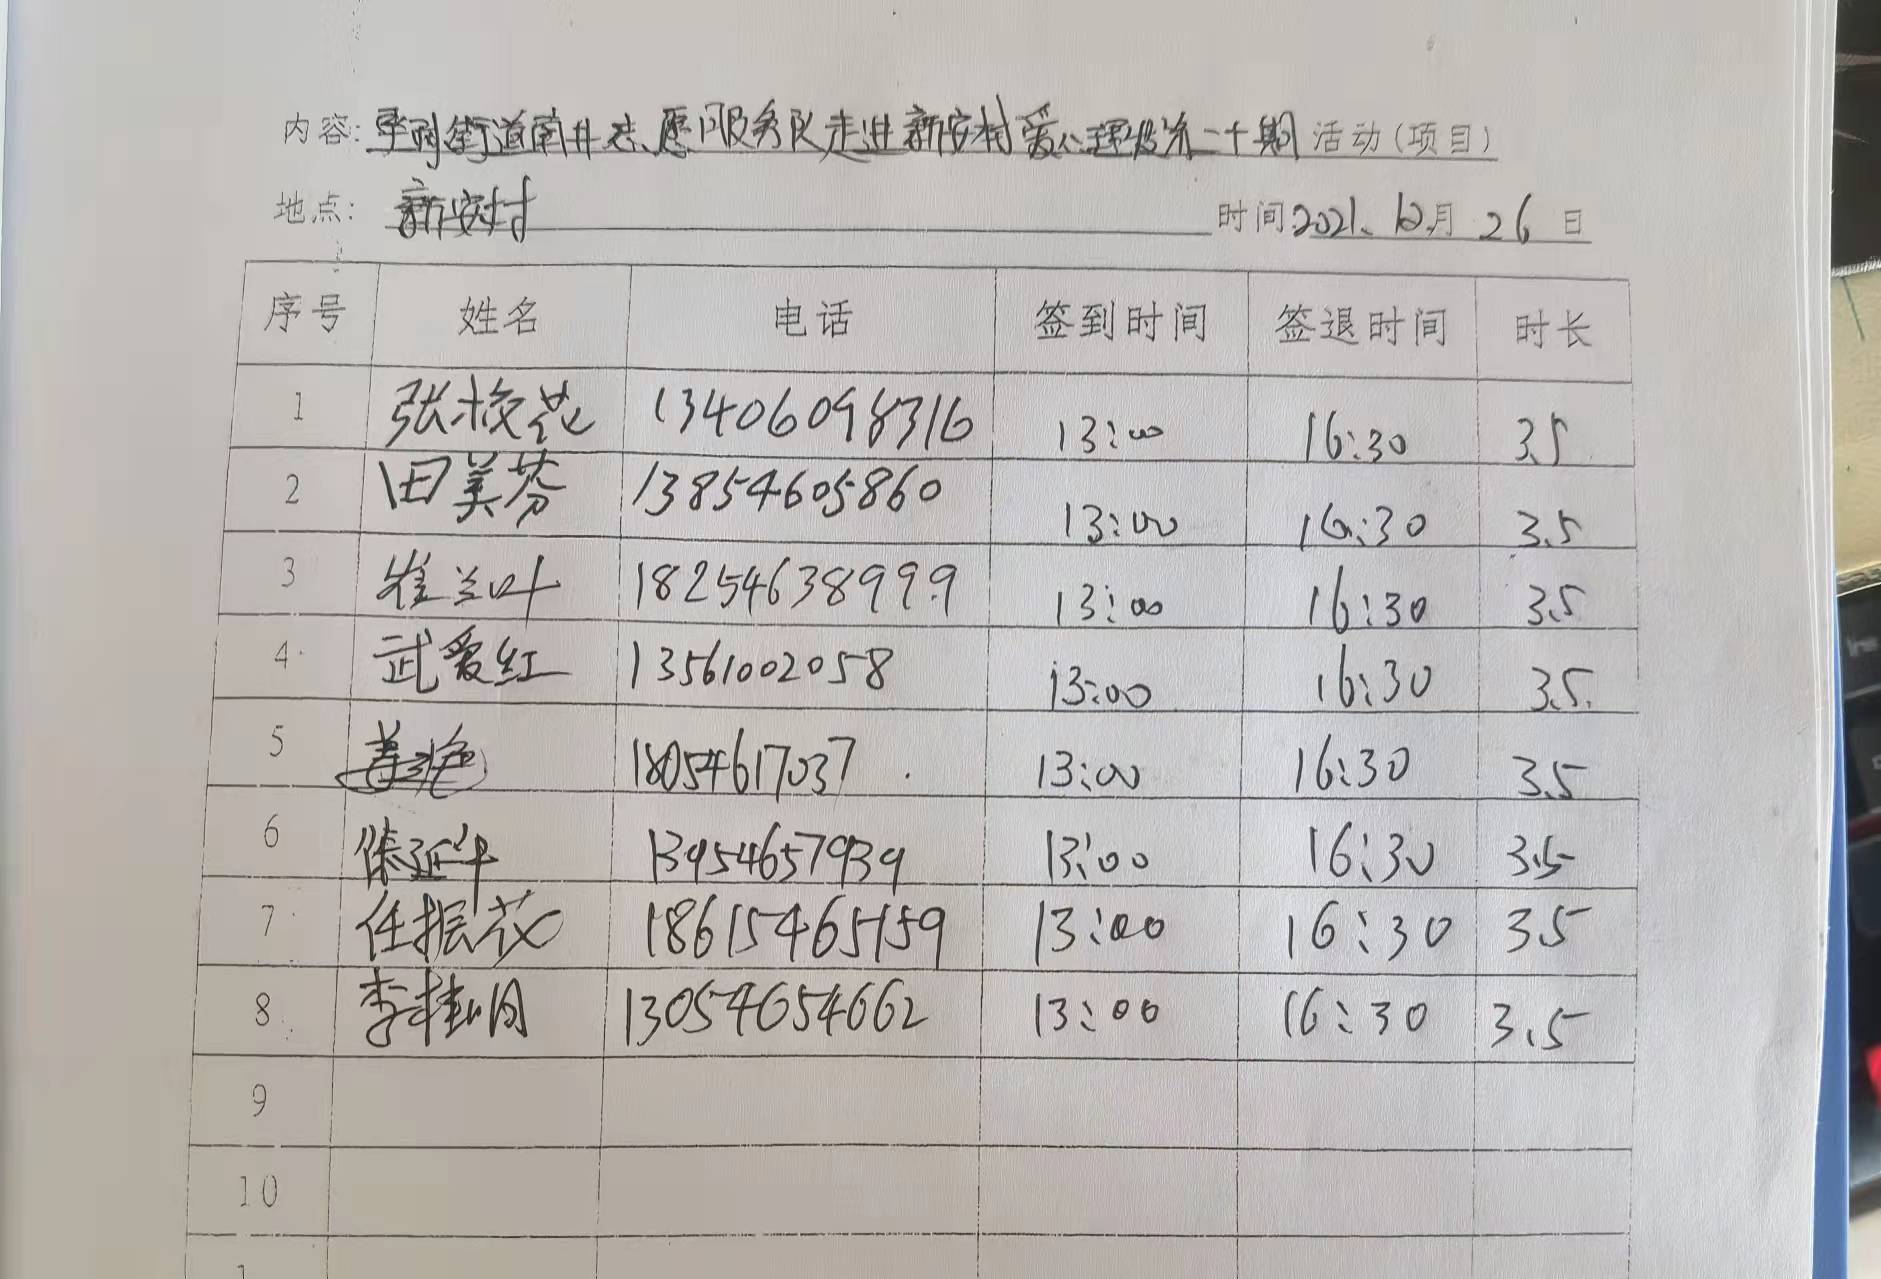 内容: 街道南井志愿服务队走进新安村爱心理发第二十期活动(项目)
地点: 新安村 时间:2021.12月26日
序号 姓名 电话 签到时间 签退时间 时长
1 张校花 13406098316 13:00 16:30 3.5
2 田美芬 13854605860 13:00 16:30 3.5
3 崔兰叶 18254638999 13:00 16:30 3.5
4 武爱红 13561002058 13:00 16:30 3.5
5 18054617037 13:00 16:30 3.5
6 徐延华 13954657939 13:00 16:30 3.5
7 任振花 18615465159 13:00 16:30 3.5
8 李桂月 13054654662 13:00 16:30 3.5
9
10